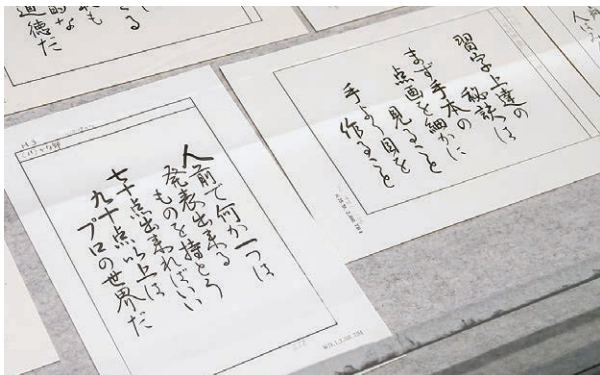 習字上達の
秘訣は
まず手本の
点画を細かに
見ること
手より目を
作ること
人前で何か一つは
発表出来る
ものを持とう
七十点出来ればいい
九十点以上は
プロの世界だ
的な
道徳だ